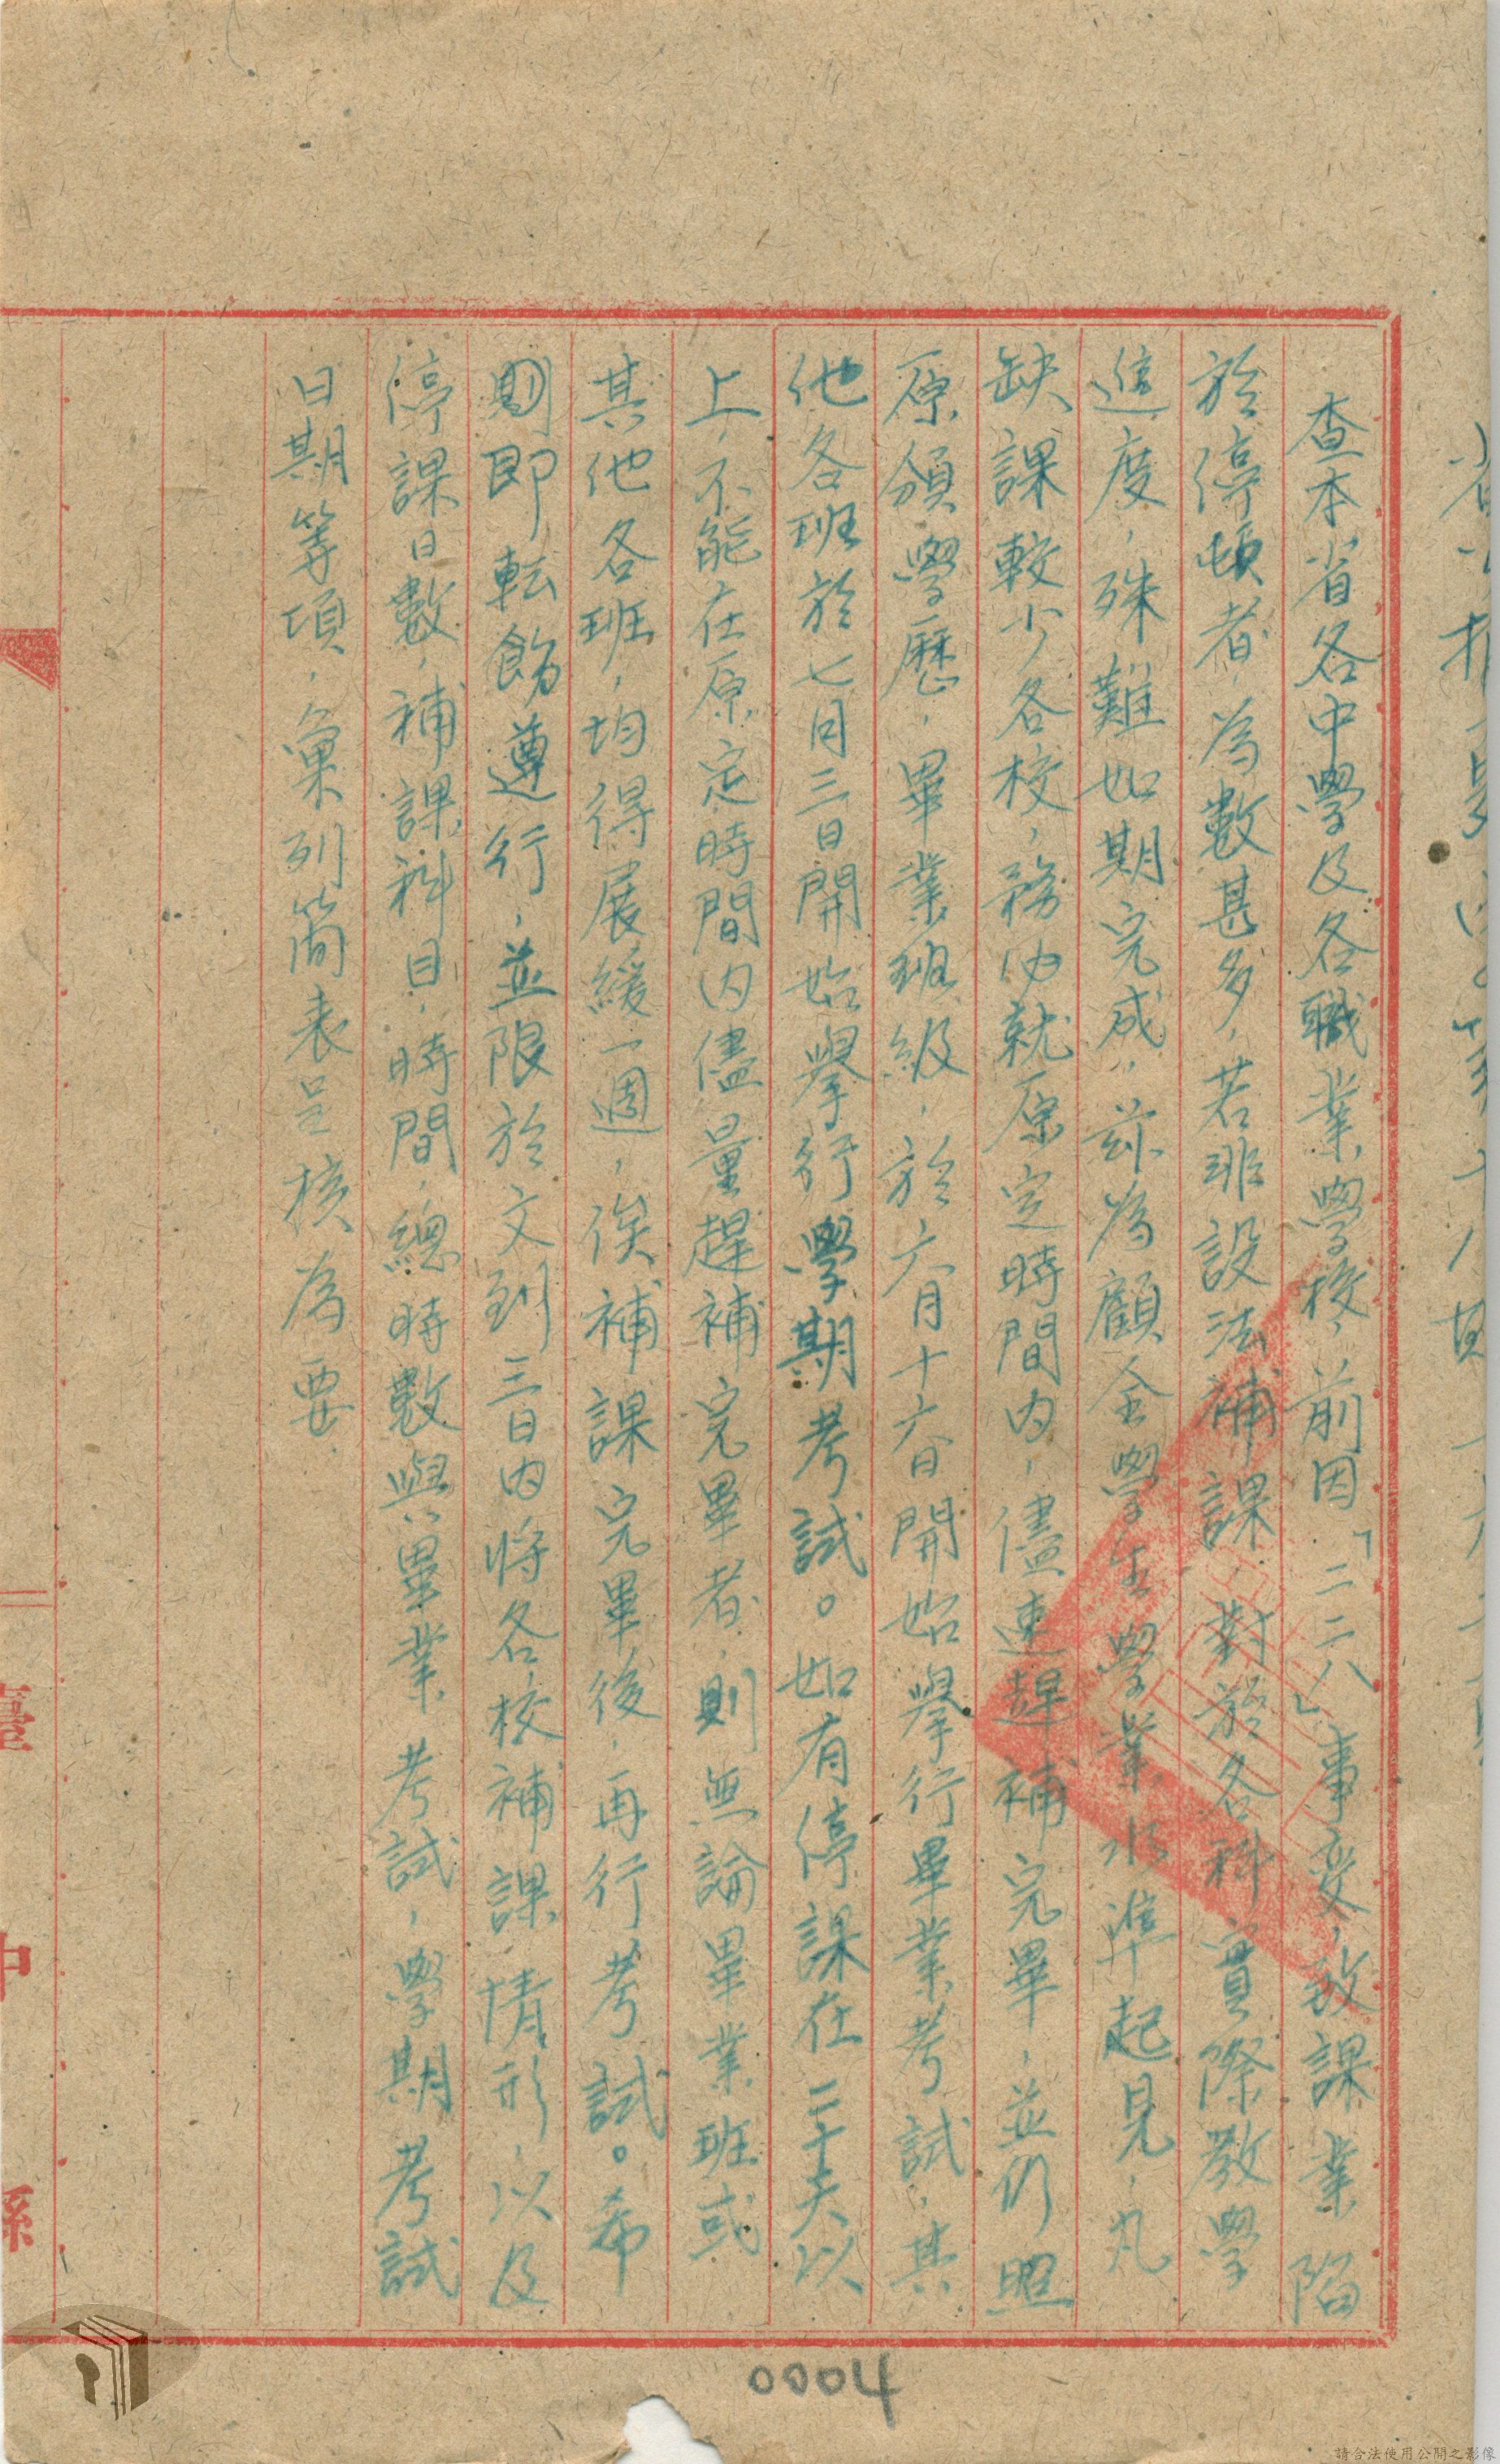 查本省各中學及各職業學校，前因「二二八」事変，致課業陷
於停頓者，為數甚多，若非設法補課，對於各科實際教學
進度，殊難如期完成，茲為顧全學生學業水準起見，凡
缺課較少各校，務必就原定時間內，儘速趕補完畢，並仍照
原頒學歷，畢業班級，於六月十六日開始舉行畢業考試，其
他各班於七月三日開始舉行學期考試。如有停課在二十天以
上，不能在原定時間內儘量趕補完畢者，則無論畢業班或
其他各班，均得展緩一週，俟補課完畢後，再行考試。希
則即転飭遵行，並限於文到三日內將各校補課情形，以及
停課日數，補課科目，時間，總時數與畢業考試，學期考試
日期等項，彙列簡表呈核為要．
臺中縣
0004
請合法使用公開之影像